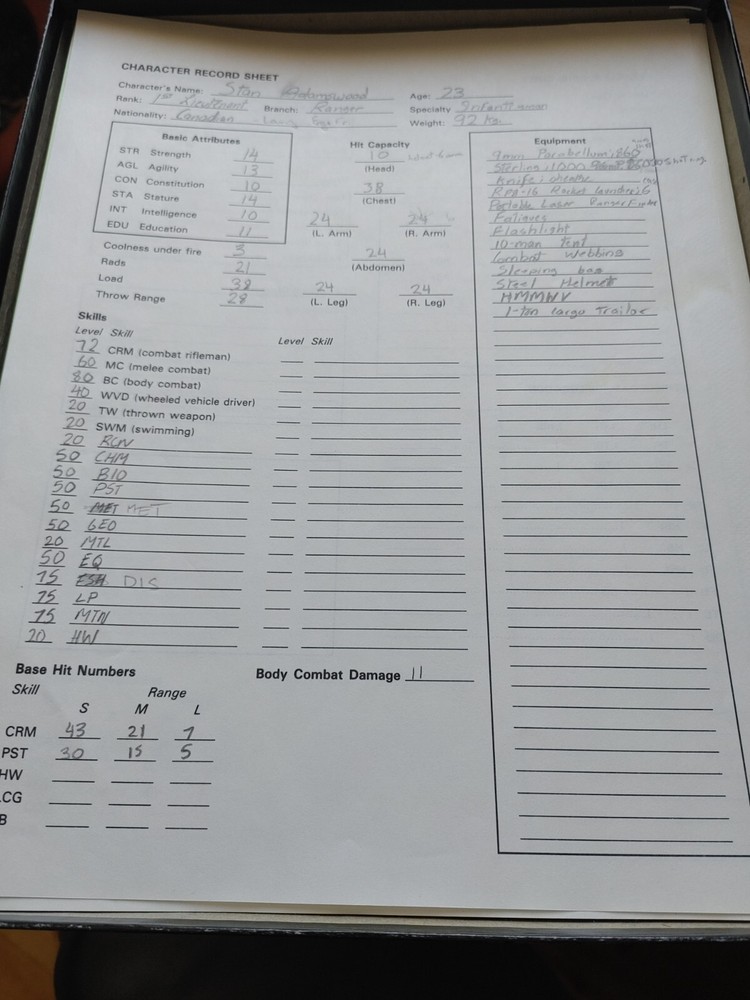 CHARACTER RECORD SHEET
Character's Name: Stan Adamswood Age: 23
Rank: 1st Lieutenant Branch: Ranger Specialty Infantryman
Nationality: Canadian Weight: 92 kg.
Basic Attributes
STR Strength 14
AGL Agility 13
CON Constitution 10
STA Stature 14
INT Intelligence 10
EDU Education 11
Coolness under fire 3
Rads 21
Load 38
Throw Range 28
Hit Capacity
10
(Head)
38
(Chest)
24 24
(L. Arm) (R. Arm)
24
(Abdomen)
24 24
(L. Leg) (R. Leg)
Equipment
9mm Parabellum;
Knife;
RPG-16 Rocket Launcher; 6
Portable Laser Range Finder
Fatigues
Flashlight
10-man tent
Combat Webbing
Sleeping bag
Steel Helmet
HMMWV
1-ton cargo trailer
Skills
Level Skill
72 CRM (combat rifleman)
60 MC (melee combat)
80 BC (body combat)
40 WVD (wheeled vehicle driver)
20 TW (thrown weapon)
20 SWM (swimming)
20 RCN
50 CHM
50 BIO
50 PST
50 MET MET
50 GEO
20 MTL
50 EQ
75 DIS
75 LP
75 MTN
20 HW
Level Skill
Base Hit Numbers
Skill Range
S M L
CRM 43 21 7
PST 30 15 5
HW
LCG
B
Body Combat Damage 11